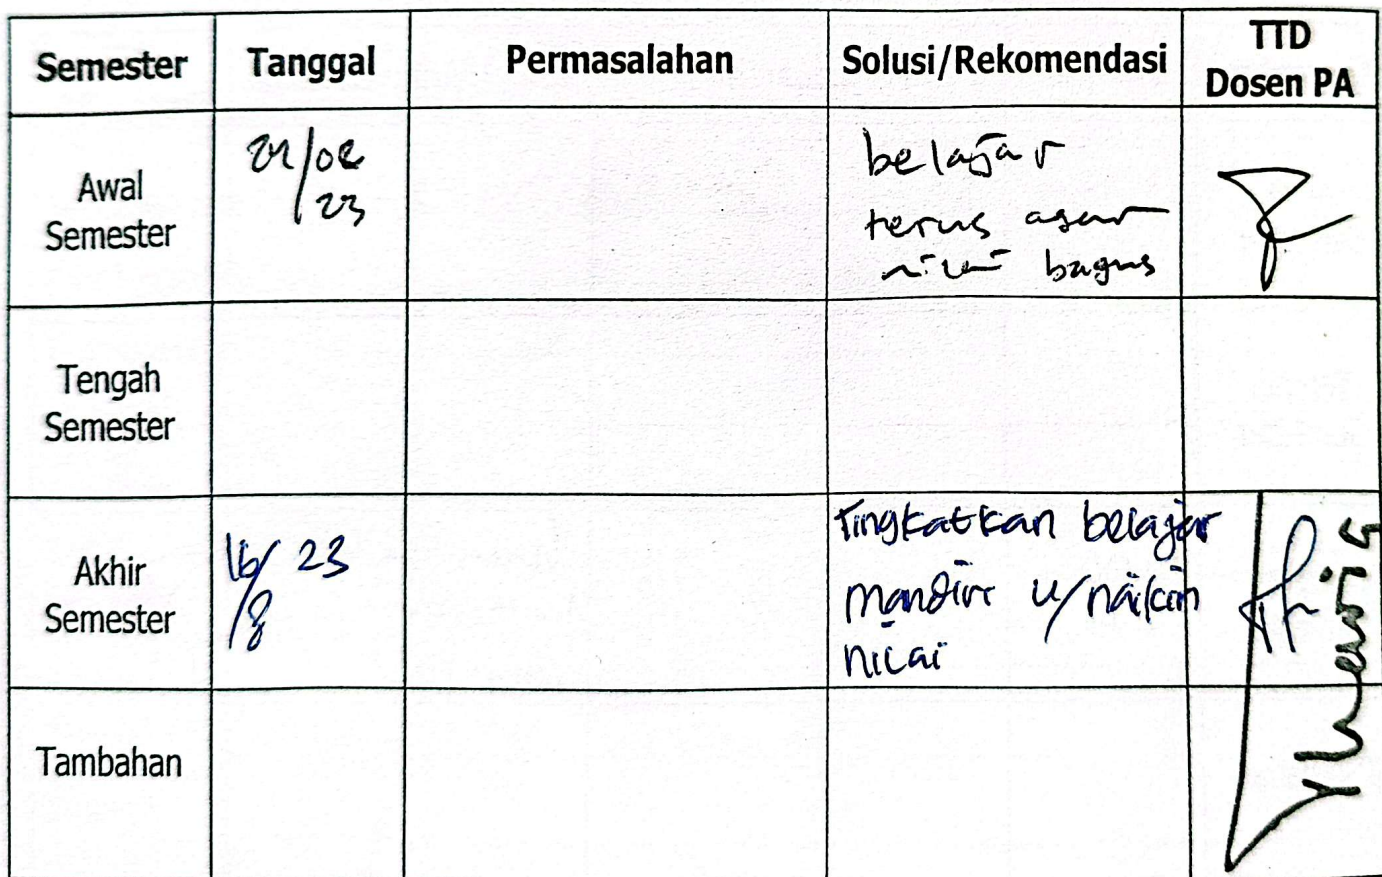 Semester Tanggal Permasalahan Solusi/Rekomendasi TTD
Dosen PA
Awal
Semester
/23
belajar
terus agar
nilai bagus
Tengah
Semester
Akhir
Semester
16/ 23
/8
Tingkatkan belajar
mandiri u/naikin
nilai
Tambahan